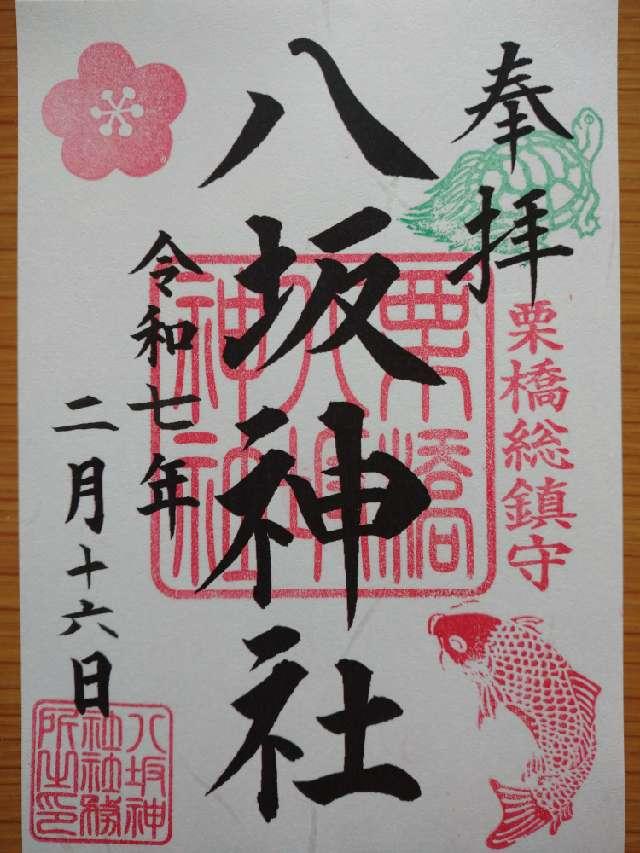 奉拝
栗橋総鎮守
八坂神社
栗橋
八坂
神社
令和七年
二月十六日
八坂神
社社務
所之印